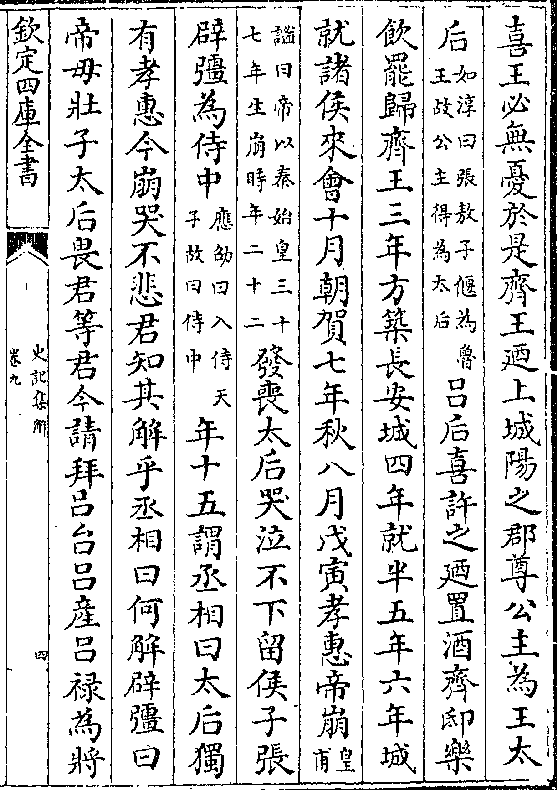 喜王必無憂於是齊王廼上城陽之郡尊公主為王太
后如淳曰張敖子偃為魯王故公主得為太后吕后喜許之廼置酒齊邸樂
飲罷歸齊王三年方築長安城四年就半五年六年城
就諸侯來會十月朝賀七年秋八月戊寅孝惠帝崩皇甫
謐曰帝以秦始皇三十七年生崩時年二十二發喪太后哭泣不下留侯子張
辟彊為侍中應劭曰入侍天子故曰侍中年十五謂丞相曰太后獨
有孝惠今崩哭不悲君知其解乎丞相曰何解辟彊曰
帝毋壯子太后畏君等君今請拜吕台吕産吕禄為將
欽定四庫全書
史記集解
卷九
四